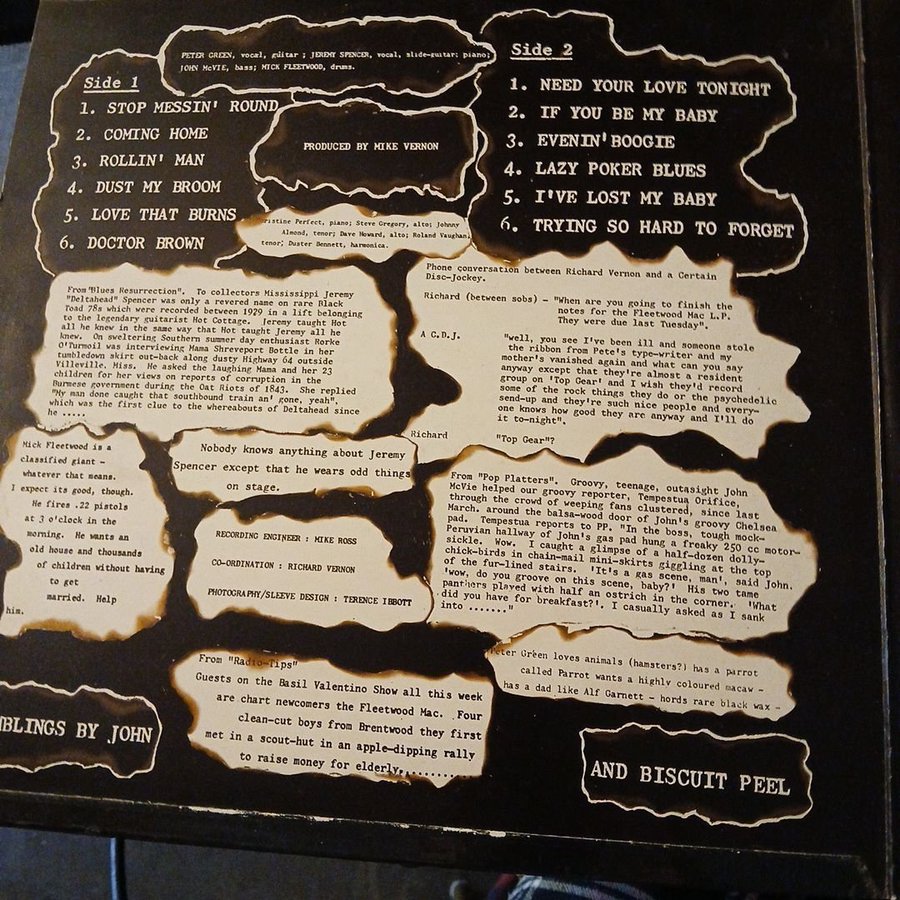 PETER GREEN, vocal, guitar ; JEREMY SPENCER, vocal, slide-guitar; piano;
JOHN McVIE, bass; MICK FLEETWOOD, drums.
Side 1
1. STOP MESSIN' ROUND
2. COMING HOME
3. ROLLIN' MAN
4. DUST MY BROOM
5. LOVE THAT BURNS
6. DOCTOR BROWN
PRODUCED BY MIKE VERNON
Side 2
1. NEED YOUR LOVE TONIGHT
2. IF YOU BE MY BABY
3. EVENIN'BOOGIE
4. LAZY POKER BLUES
5. I'VE LOST MY BABY
6. TRYING SO HARD TO FORGET
ristine Perfect, piano; Steve Gregory, alto; Johnny
Almond, tenor; Dave Howard, alto; Roland Vaughan,
tenor; Duster Bennett, harmonica.
From "Blues Resurrection". To collectors Mississippi Jeremy
"Deltahead" Spencer was only a revered name on rare Black
Toad 78s which were recorded between 1929 in a lift belonging
to the legendary guitarist Hot Cottage. Jeremy taught Hot
all he knew in the same way that Hot taught Jeremy all he
knew. On sweltering Southern summer day enthusiast Rorke
O'Turmoil was interviewing Mama Shreveport Bottle in her
tumbledown skirt out-back along dusty Highway 64 outside
Villeville. Miss. He asked the laughing Mama and her 23
children for her views on reports of corruption in the
Burmese government during the Oat Riots of 1843. She replied
"My man done caught that southbound train an' gone, yeah",
which was the first clue to the whereabouts of Deltahead since
he .....
Phone conversation between Richard Vernon and a Certain
Disc-Jockey.
Richard (between sobs) - "When are you going to finish the
notes for the Fleetwood Mac L.P.
They were due last Tuesday".
A C.D.J. "well, you see I've been ill and someone stole
the ribbon from Pete's type-writer and my
mother's vanished again and what can you say
anyway except that they're almost a resident
group on 'Top Gear' and I wish they'd record
some of the rock things they do or the psychedelic
send-up and they're such nice people and every-
one knows how good they are anyway and I'll do
it to-night".
Richard "Top Gear"?
Mick Fleetwood is a
classified giant -
whatever that means.
I expect its good, though.
He fires .22 pistols
at 3 o'clock in the
morning. He wants an
old house and thousands
of children without having
to get
married. Help
him.
Nobody knows anything about Jeremy
Spencer except that he wears odd things
on stage.
RECORDING ENGINEER : MIKE ROSS
CO-ORDINATION : RICHARD VERNON
PHOTOGRAPHY/SLEEVE DESIGN : TERENCE IBBOTT
From "Pop Platters". Groovy, teenage, outasight John
McVie helped our groovy reporter, Tempestua Orifice,
through the crowd of weeping fans clustered, since last
March. around the balsa-wood door of John's groovy Chelsea
pad. Tempestua reports to PP. "In the boss, tough mock-
Peruvian hallway of John's gas pad hung a freaky 250 cc motor-
sickle. Wow. I caught a glimpse of a half-dozen dolly-
chick-birds in chain-mail mini-skirts giggling at the top
of the fur-lined stairs. 'It's a gas scene, man', said John.
'wow, do you groove on this scene, baby?' His two tame
panthers played with half an ostrich in the corner. 'What
did you have for breakfast?', I casually asked as I sank
into ......."
From "Radio-Tips"
Guests on the Basil Valentino Show all this week
are chart newcomers the Fleetwood Mac. Four
clean-cut boys from Brentwood they first
met in a scout-hut in an apple-dipping rally
to raise money for elderly............
Peter Green loves animals (hamsters?) has a parrot
called Parrot wants a highly coloured macaw -
has a dad like Alf Garnett - hords rare black wax -
MBLINGS BY JOHN
AND BISCUIT PEEL